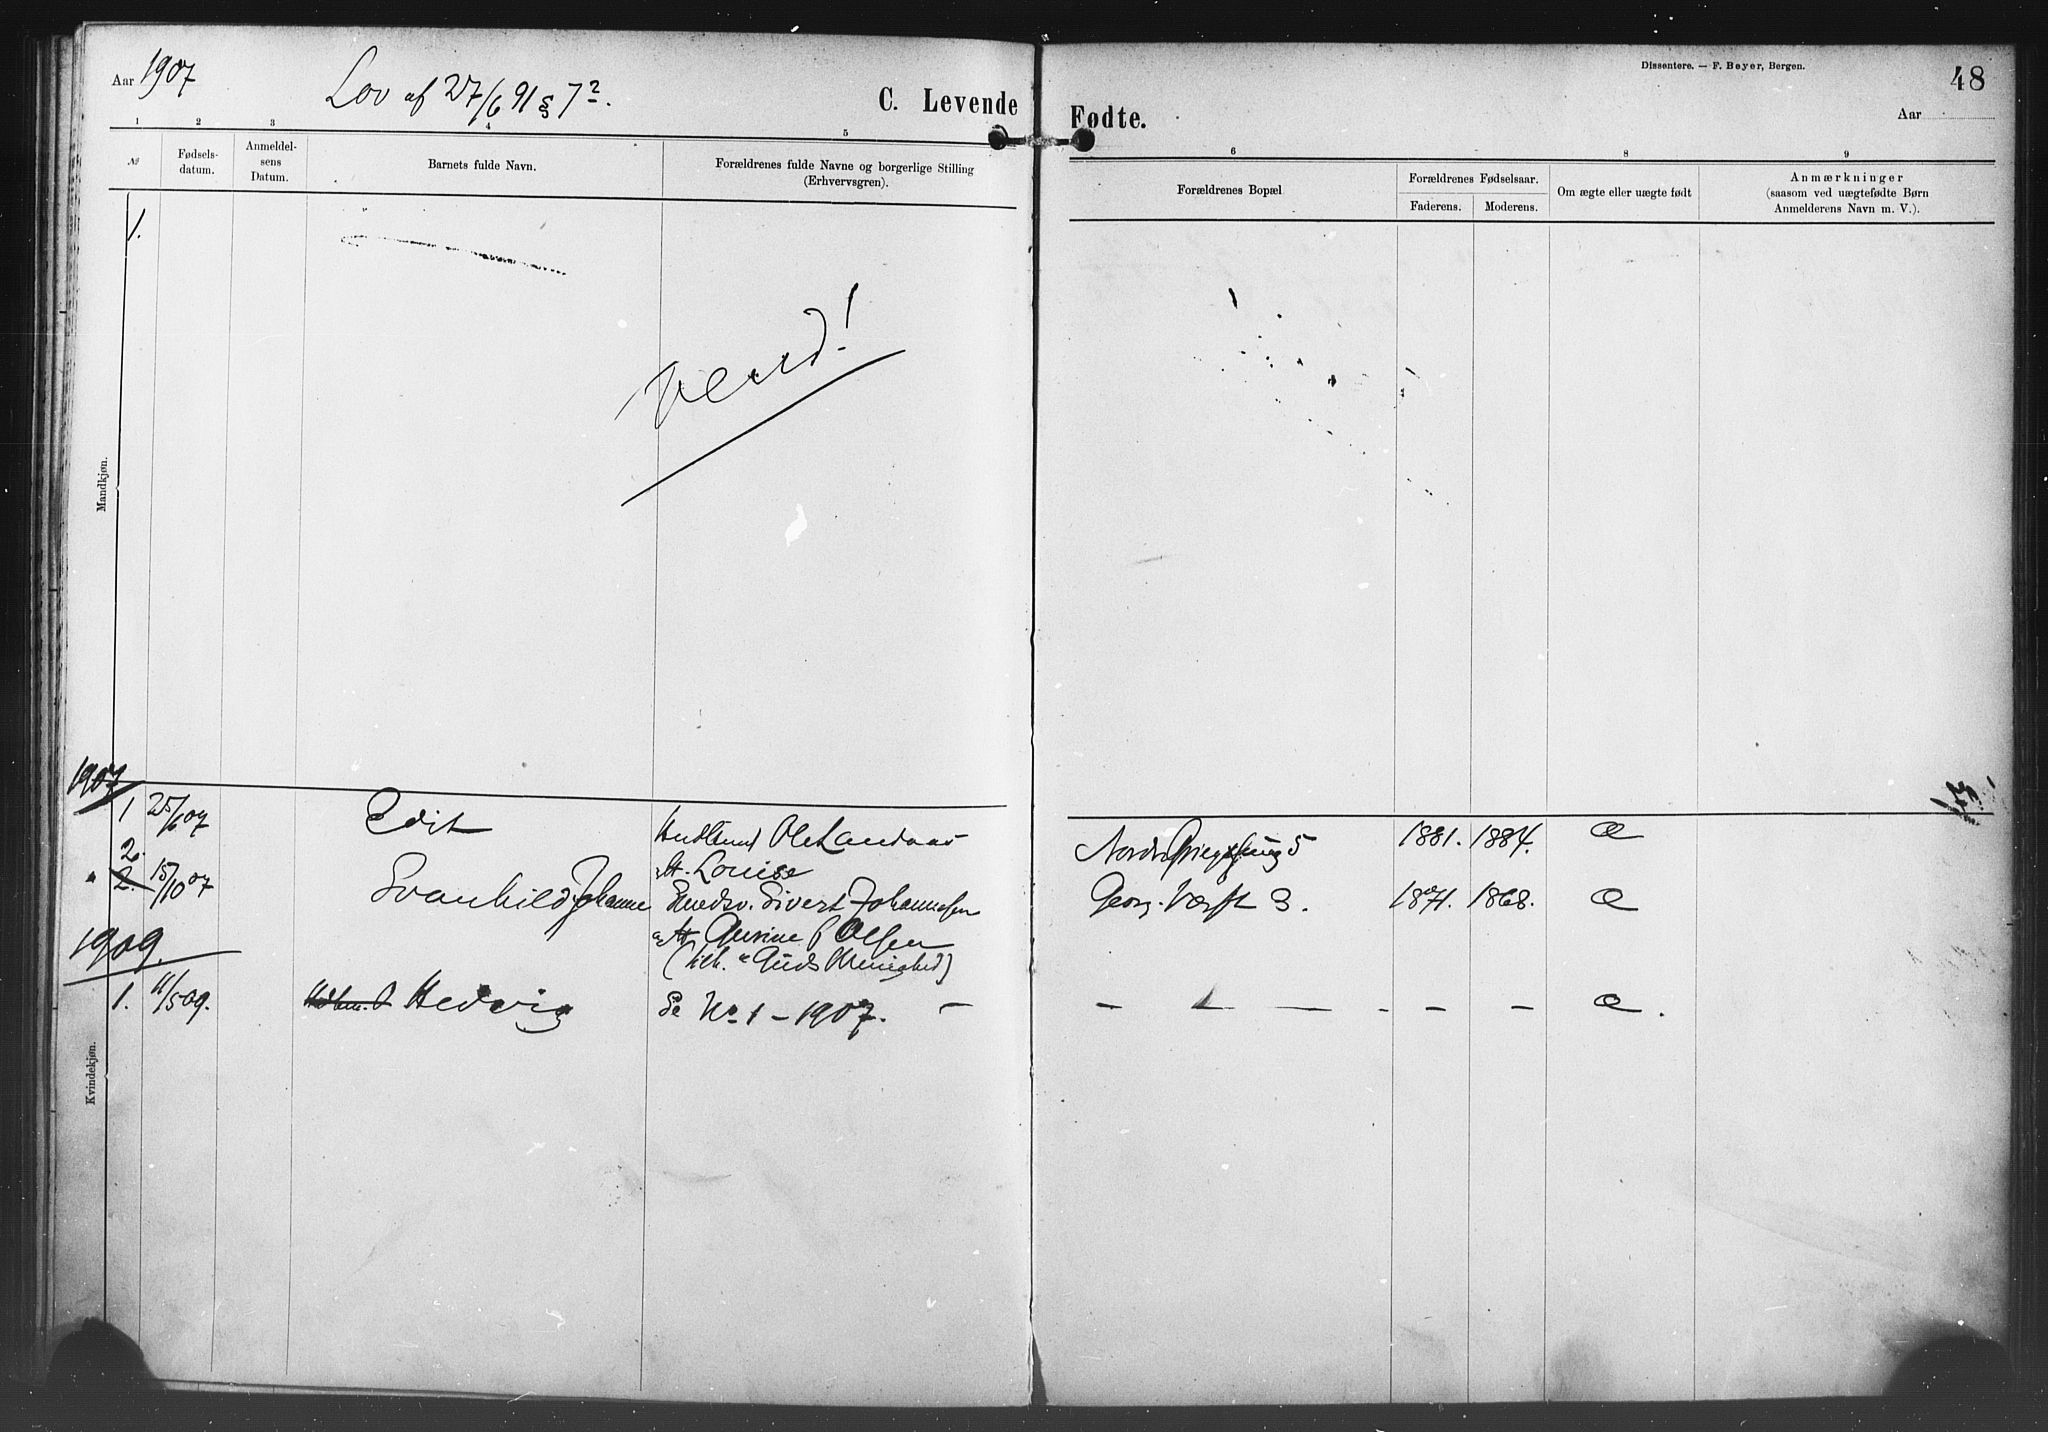 Aar 1907
Lov af 27/6 91 § 7².
C. Levende Fødte.
Dissentere. — F. Beyer, Bergen.
48
Aar
1 2 3 4 5 6 8 9
№
Fødselsdatum.
Anmeldelsens Datum.
Barnets fulde Navn.
Forældrenes fulde Navne og borgerlige Stilling (Erhvervsgren).
Forældrenes Bopæl
Forældrenes Fødselsaar.
Faderens. Moderens.
Om ægte eller uægte født
Anmærkninger
(saasom ved uægtefødte Børn
Anmelderens Navn m. V.).
Mandkjøn.
1.
Vend!
1907
1 25/6 07 Edit Ole Landaas 5 1881. 1884. Æ
Louise
2.
2. 15/10 07 Svanhild Johanne Sivert Johannesen Georg. Værft 3. 1871. 1868. Æ
Olsen
Guds Menighed)
1909.
1. 11/5 09. Hedvig Se No 1 – 1907. — — — — - — — Æ.
Kvindekjøn.